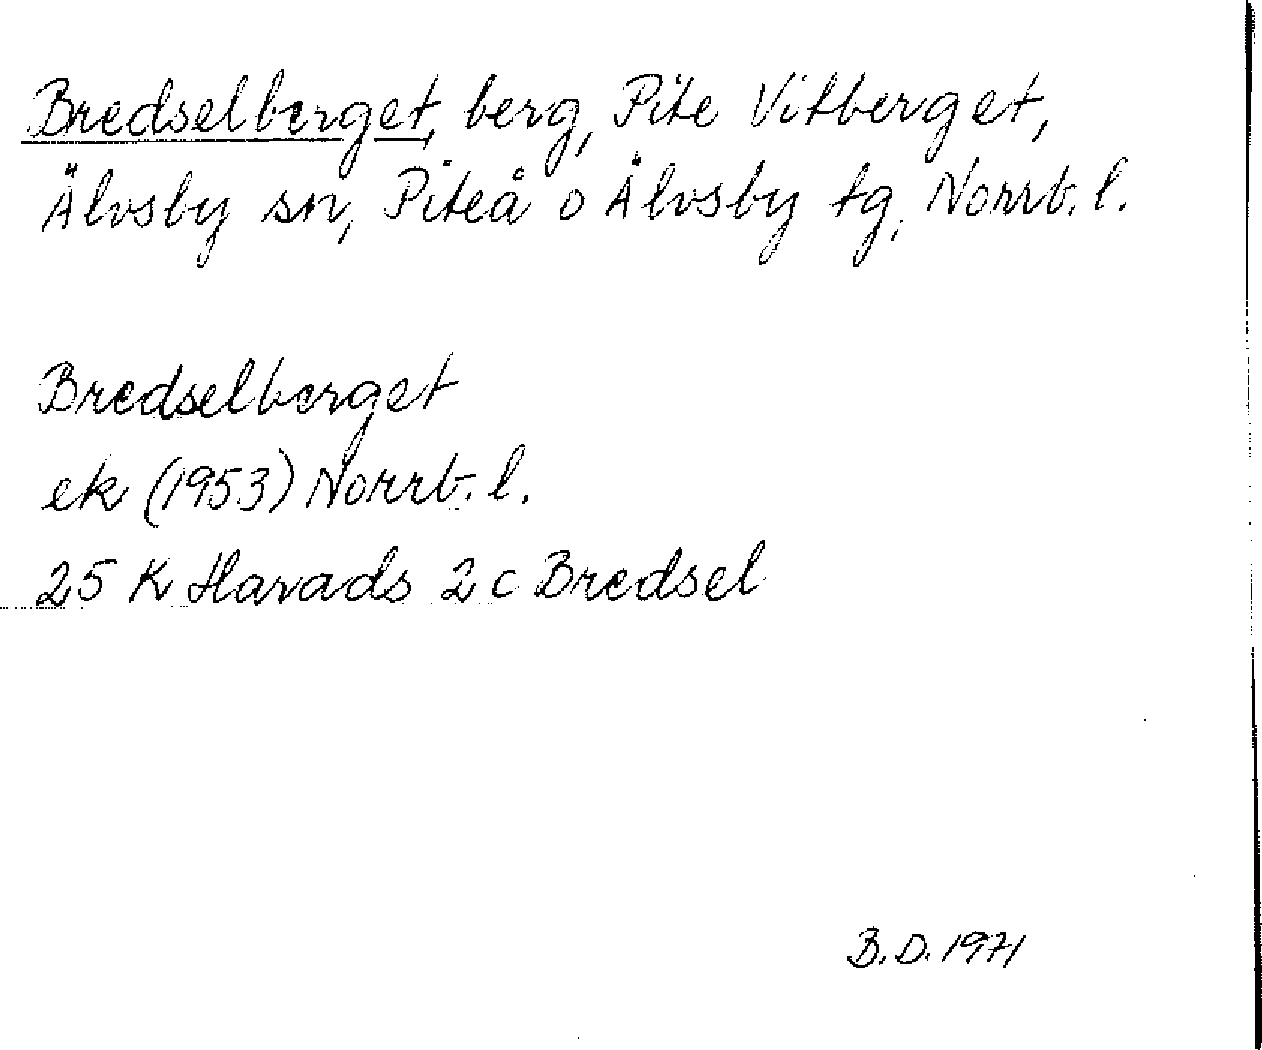 Bredselberget, berg, Pite Vitberget,
Älvsby sn, Piteå o Älvsby tg, Norrb. l.
Bredselberget
ek (1953) Norrb. l.
25 K Harads 2 c Bredsel
B.D. 1971